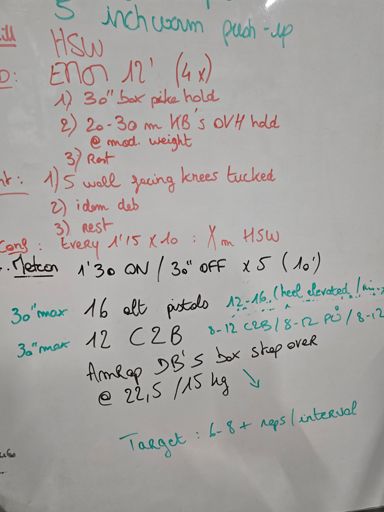 5 inchworm push-up
ill HSW
D: EMOM 12' (4x)
1) 30" box pike hold
2) 20-30 m KB's OVH hold
@ mod. weight
3) Rest
nt: 1) 5 wall facing knees tucked
2) idem deb
3) rest
Cong: Every 1'15 x 10 : X m HSW
Metcon 1'30 ON / 30" OFF x 5 (10')
30" max 16 alt pistols 12-16 (heel elevated /
30" max 12 C2B 8-12 C2B / 8-12 PU / 8-12
Amrap DB's box step over
@ 22,5 / 15 kg
Target : 6-8+ reps / interval